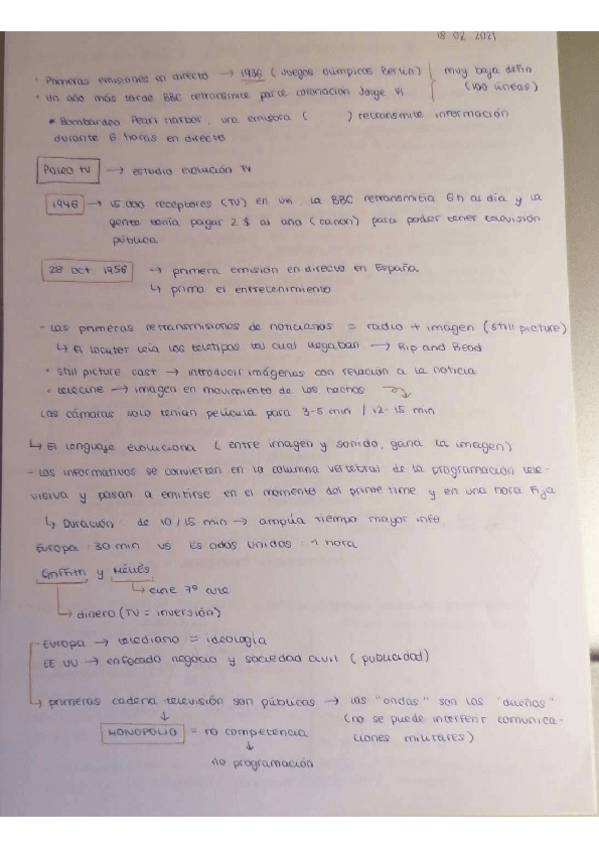 18 02 2021
· Primeras emisiones en directo → 1936 (Juegos Olímpicos Berlín) } muy baja defin
· Un año más tarde BBC retransmite parte coronación Jorge VI (100 líneas)
* Bombardeo Pearl Harbor, una emisora ( ) retransmite información
durante 6 horas en directo
Paleo TV → estudio evolución TV
1946 → 15.000 receptores (TV) en UK, la BBC retransmitía 6h al día y la
gente tenía pagar 2 $ al año (canon) para poder tener televisión
pública
28 Oct 1956 → primera emisión en directo en España
↳ prima el entretenimiento
- Las primeras retransmisiones de noticiarios = radio + imagen (still picture)
↳ El locutor leía los teletipos tal cual llegaban → Rip and Read
· still picture cast → introducir imágenes con relación a la noticia
· telecine → imagen en movimiento de los hechos
Las cámaras solo tenían película para 3-5 min / 12-15 min
↳ El lenguaje evoluciona (entre imagen y sonido, gana la imagen)
- Los informativos se convierten en la columna vertebral de la programación tele-
visiva y pasan a emitirse en el momento del prime time y en una hora fija
↳ Duración de 10/15 min → amplía tiempo mayor info
Europa : 30 min vs Es ados Unidos : 1 hora
Griffith y Méliès
↳ cine 7º arte
→ dinero (TV = inversión)
Europa → telediario = ideología
EE UU → enfocado negocio y sociedad civil (publicidad)
↳ primeras cadena televisión son públicas → las "ondas" son los "dueños"
↓ (no se puede interferir comunica-
MONOPOLIO = no competencia ciones militares)
↓
no programación